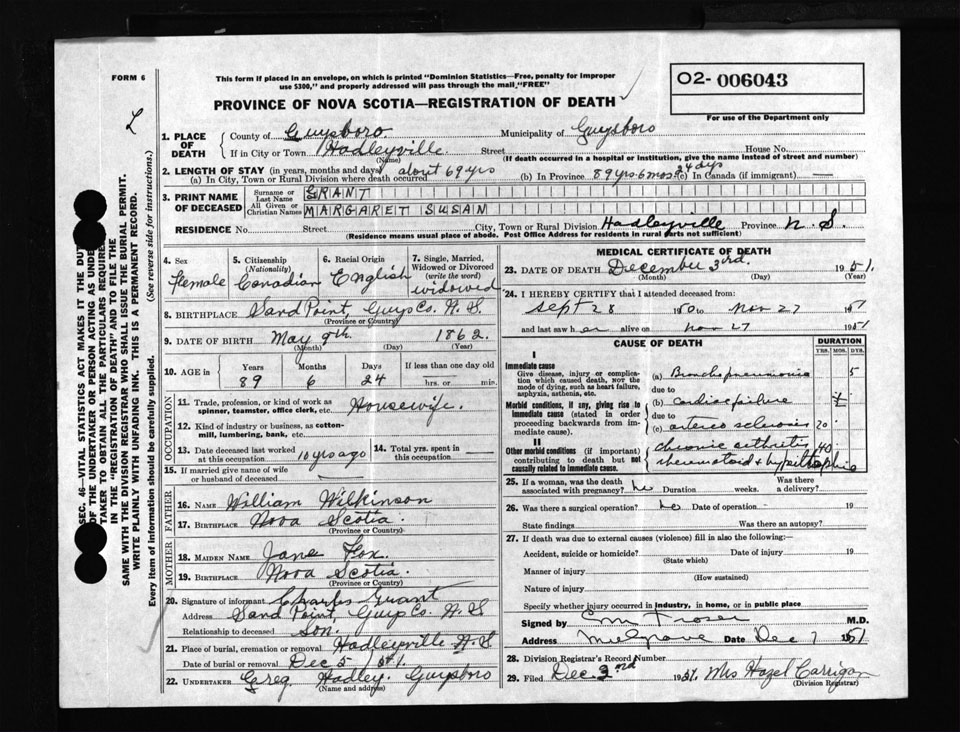 FORM 6
This form if placed in an envelope, on which is printed "Dominion Statistics—Free, penalty for improper
use $300," and properly addressed will pass through the mail "FREE"
PROVINCE OF NOVA SCOTIA—REGISTRATION OF DEATH
02- 006043
For use of the Department only
SEC. 46—VITAL STATISTICS ACT MAKES IT THE DUT
OF THE UNDERTAKER OR PERSON ACTING AS UNDE
TAKER TO OBTAIN ALL THE PARTICULARS REQUIRED
IN THE "REGISTRATION OF DEATH" AND TO FILE THE
SAME WITH THE DIVISION REGISTRAR WHO SHALL ISSUE THE BURIAL PERMIT.
WRITE PLAINLY WITH UNFADING INK. THIS IS A PERMANENT RECORD.
Every item of information should be carefully supplied. (See reverse side for instructions.)
1. PLACE OF DEATH
County of Guysboro Municipality of Guysboro
If in City or Town Hadleyville Street House No.
(Name) (If death occurred in a hospital or institution, give the name instead of street and number)
2. LENGTH OF STAY (in years, months and days)
(a) In City, Town or Rural Division where death occurred about 69 yrs (b) In Province 89 yrs-6 mos 24 dys (c) In Canada (if immigrant) —
3. PRINT NAME OF DECEASED
Surname or Last Name GRANT
All Given or Christian Names MARGARET SUSAN
RESIDENCE No. Street City, Town or Rural Division Hadleyville Province N. S.
(Residence means usual place of abode. Post Office Address for residents in rural parts not sufficient)
4. Sex Female
5. Citizenship (Nationality) Canadian
6. Racial Origin English
7. Single, Married, Widowed or Divorced (write the word) widowed
8. BIRTHPLACE Sand Point, Guys Co. N. S.
(Province or Country)
9. DATE OF BIRTH May 9th 1862
(Month) (Day) (Year)
10. AGE in Years Months Days If less than one day old
89 6 24 hrs. or min.
OCCUPATION
11. Trade, profession, or kind of work as spinner, teamster, office clerk, etc. Housewife.
12. Kind of industry or business, as cotton-mill, lumbering, bank, etc.
13. Date deceased last worked at this occupation 10 yrs ago
14. Total yrs. spent in this occupation —
15. If married give name of wife or husband of deceased
FATHER
16. Name William Wilkinson
17. Birthplace Nova Scotia.
(Province or Country)
MOTHER
18. MAIDEN NAME Jane Fox.
19. BIRTHPLACE Nova Scotia.
(Province or Country)
20. Signature of informant Charles Grant
Address Sand Point, Guys Co. N. S
Relationship to deceased Son.
21. Place of burial, cremation or removal Hadleyville N. S
Date of burial or removal Dec 5 /51.
22. UNDERTAKER Greg Hadley. Guysboro
(Name and address)
MEDICAL CERTIFICATE OF DEATH
23. DATE OF DEATH December 3rd. 1951.
(Month) (Day) (Year)
24. I HEREBY CERTIFY that I attended deceased from:
Sept 28 1950 to Nov 27 1951
and last saw her alive on Nov 27 1951
CAUSE OF DEATH DURATION
YRS. MOS. DYS.
I
Immediate cause
Give disease, injury or complication which caused death, NOT the mode of dying, such as heart failure, asphyxia, asthenia, etc.
(a) Bronchopneumonia 5
due to
Morbid conditions, if any, giving rise to immediate cause (stated in order proceeding backwards from immediate cause).
(b) Cardiac failure
due to
(c) arterio sclerosis 20
II
Other morbid conditions (if important) contributing to death but not causally related to immediate cause.
Chronic arthritis 40
rheumatoid &
25. If a woman, was the death associated with pregnancy? no Duration weeks. Was there a delivery?
26. Was there a surgical operation? no Date of operation 19
State findings Was there an autopsy?
27. If death was due to external causes (violence) fill in also the following:—
Accident, suicide or homicide? Date of injury 19
(State which)
Manner of injury
(How sustained)
Nature of injury
Specify whether injury occurred in industry, in home, or in public place
Signed by C M Fraser M.D.
Address Date Dec 7 1951
28. Division Registrar's Record Number
29. Filed Dec. 3rd 1951. Mrs Hazel Carrigan
(Division Registrar)